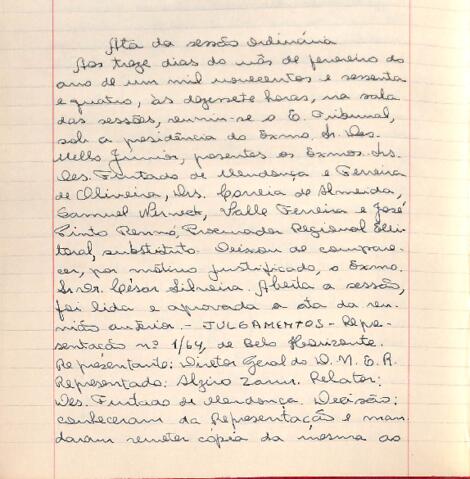 Ata da sessão ordinária
Aos treze dias do mês de fevereiro do
ano de um mil novecentos e sessenta
e quatro, às dezessete horas, na sala
das sessões, reuniu-se o E. Tribunal,
sob a presidência do Exmo. Sr. Des.
Mello Júnior, presentes os Exmos. Srs.
Des. Furtado de Mendonça e Ferreira
de Oliveira, Drs. Correia de Almeida,
Samuel Werneck, Valle Ferreira e José
Pinto Rennó, Procurador Regional Elei-
toral, substituto. Deixou de compare-
cer, por motivo justificado, o Exmo.
Sr. Dr. César Silveira. Aberta a sessão,
foi lida e aprovada a ata da reu-
nião anterior. - JULGAMENTOS - Repre-
sentação nº 1/64, de Belo Horizonte.
Representante: Diretor Geral do D. M. E. R.
Representado: Alziro Zarur. Relator:
Des. Furtado de Mendonça. Decisão:
conheceram da Representação e man-
daram remeter cópia da mesma ao